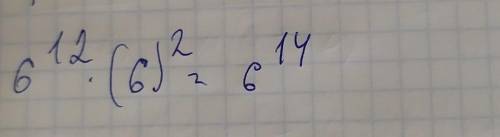 6¹² · (6)² = 6¹⁴